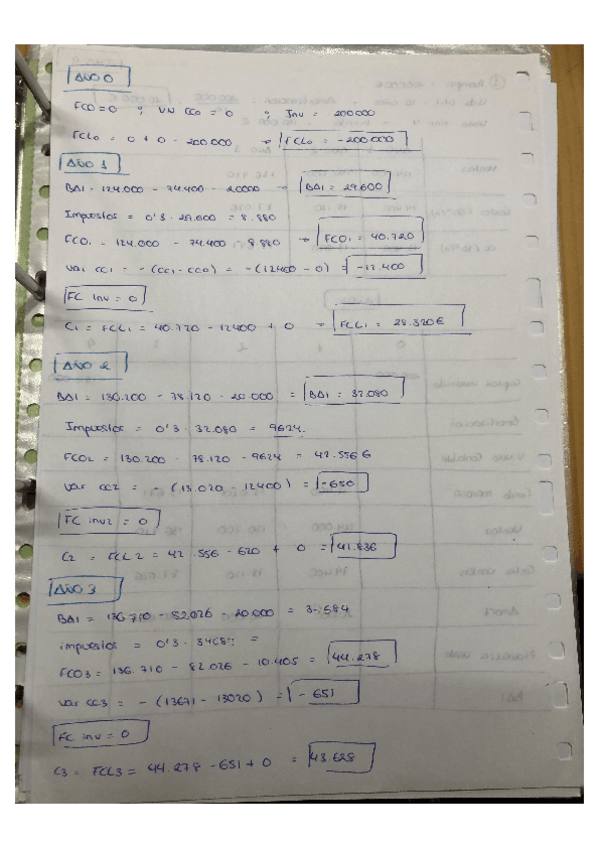 AÑO 0
FCO=0 ; VN CC0 = 0 ; Inv = 200000
FCL0 = 0 + 0 - 200.000 → FCL0 = -200000
AÑO 1
BAI = 124.000 - 74.400 - 20000 → BAI = 29.600
Impuestos = 0'3 · 29.600 = 8.880
FCO1 = 124.000 - 74.400 - 8.880 → FCO1 = 40.720
Var CC1 = - (CC1 - CC0) = - (12400 - 0) = -12.400
FC Inv = 0
C1 = FCL1 = 40.720 - 12400 + 0 → FCL1 = 28.320€
AÑO 2
BAI = 130.200 - 78.120 - 20.000 = BAI = 32.080
Impuestos = 0'3 · 32.080 = 9624
FCO2 = 130.200 - 78.120 - 9624 = 42.556€
Var CC2 = - (13.020 - 12400) = -650
FC inv2 = 0
C2 = FCL2 = 42.556 - 620 + 0 = 41.836
AÑO 3
BAI = 136.710 - 82.026 - 20.000 =
impuestos = 0'3 ·
FCO3 = 136.710 - 82.026 - 10.405 = 44.278
Var CC3 = - (13671 - 13020) = - 651
FC inv = 0
C3 = FCL3 = 44.278 - 651 + 0 = 43.628